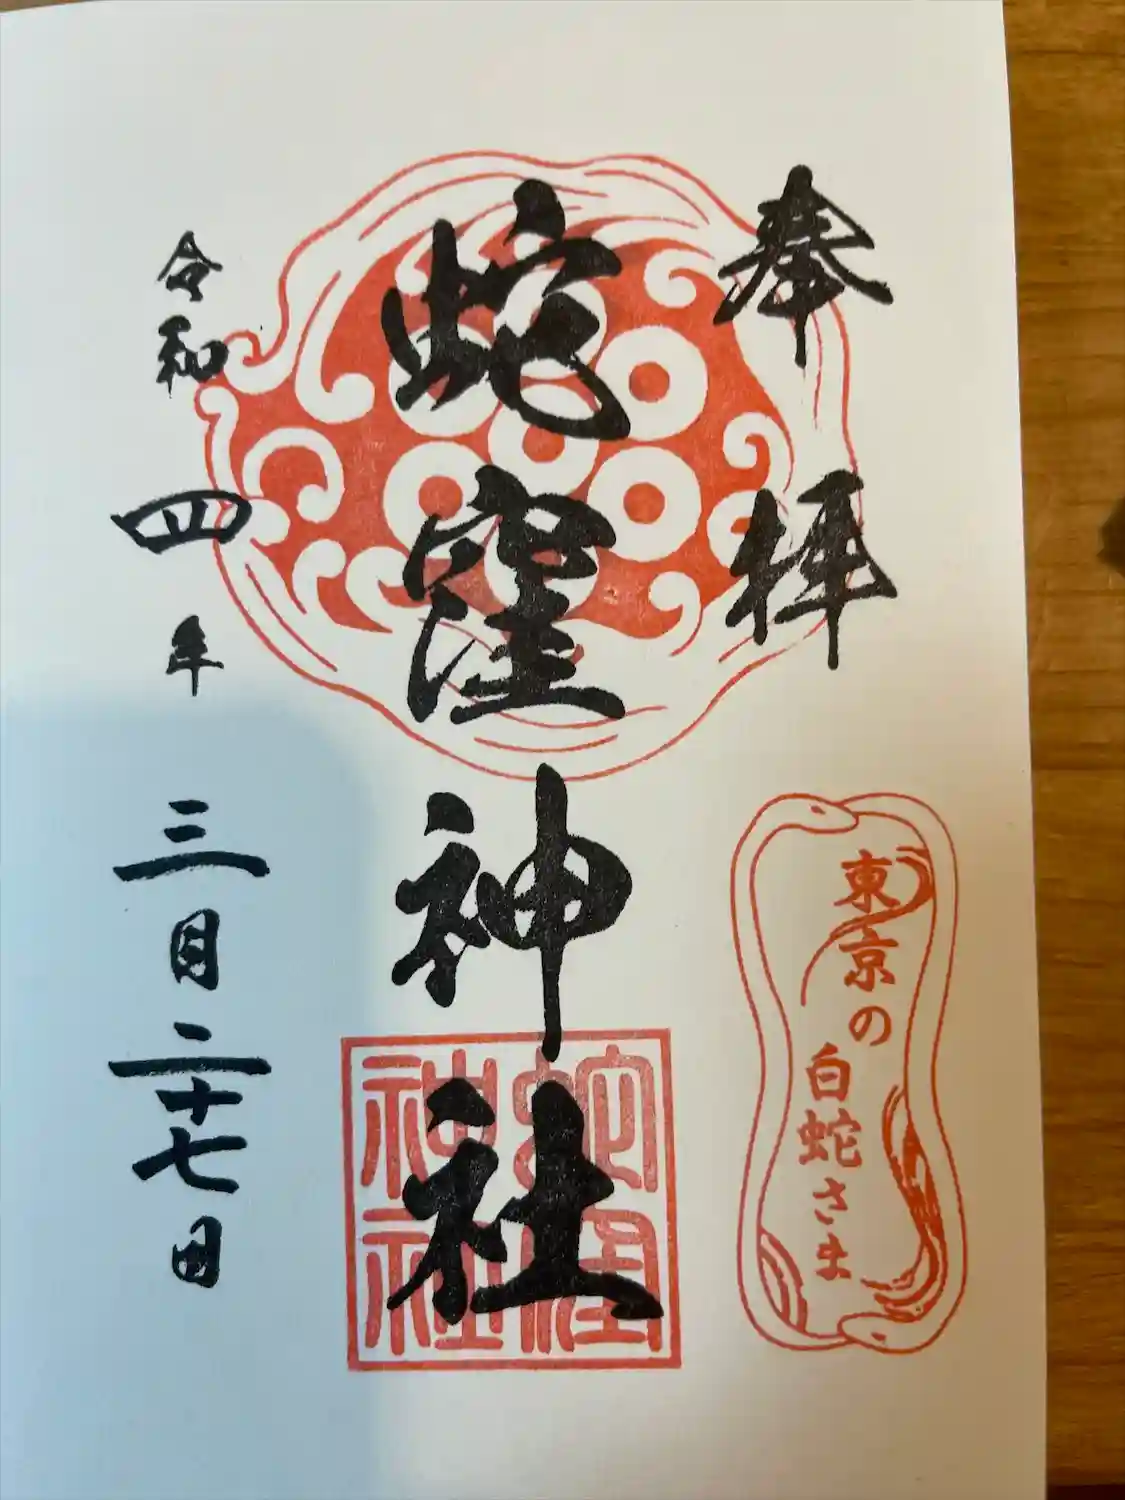 奉拝
東京の
白蛇さま
蛇窪神社
蛇窪
神社
令和四年三月二十七日